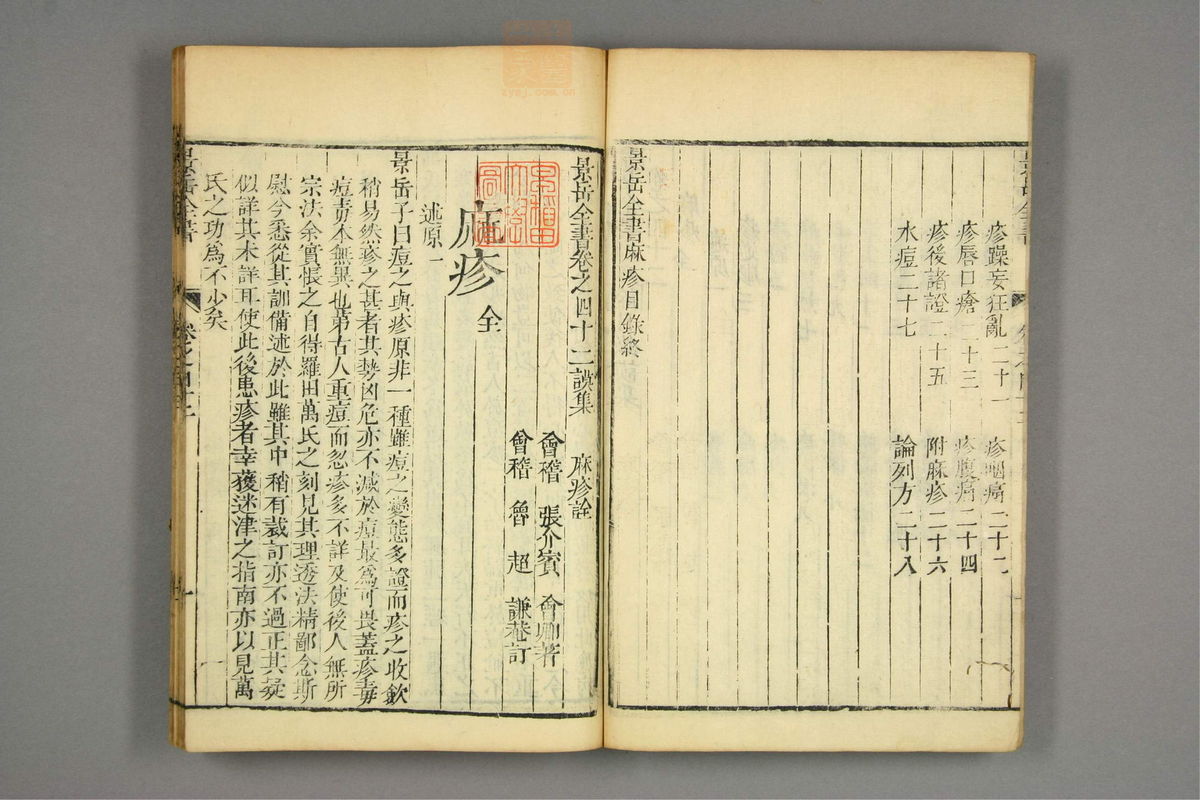 疹躁妄狂亂二十一　疹咽痛二十二
疹唇口瘡二十三　疹腹痛二十四
疹後諸證二十五　附麻疹二十六
水痘二十七　論列方二十八
景岳全書麻疹目錄終
景岳全書卷之四十二謨集　麻疹詮
會稽　張介賓　會卿著
會稽　魯　超　謙菴訂
麻疹　全
述原一
景岳子曰痘之與疹原非一種雖痘之變態多證而疹之收歛
稍易然疹之甚者其勢凶危亦不減於痘最為可畏蓋疹毒
痘毒本無異也第古人重痘而忽疹多不詳及使後人無所
宗法余實悵之自得羅田萬氏之刻見其理透法精鄙念斯
慰今悉從其訓備述於此雖其中稍有裁訂亦不過正其疑
似詳其未詳耳使此後患疹者幸獲迷津之指南亦以見萬
氏之功為不少矣
景岳全書
卷之四十二
zysj.com.cn